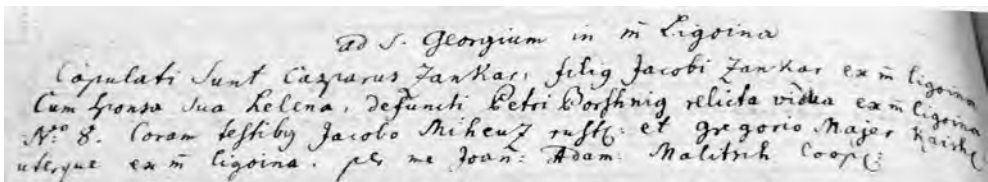 ad S. Georgium in m̄ Ligoina
Copulati Sunt Casparus Zankar, filig Jacobi Zankar ex m̄ ligoina
Cum sponsa Sua helena, defuncti Petri Borshnig relicta vidua ex m̄ ligoina
N:º 8. Coram testibg Jacobo Miheuz rustc: et gregorio Majer Kaishc:
uterque ex m̄ ligoina. per me Joan: Adam: Malitsch Coopc: